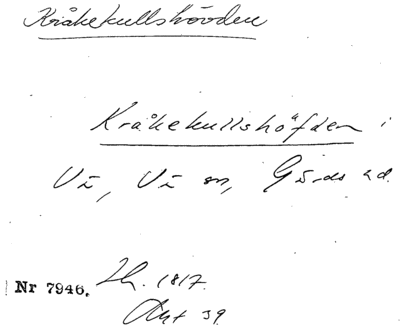 Kråkekullshövden
Kråkekullshöfden i
Vä, Vä sn, Gärds hd.
Nr 7946. Lh. 1817.
Akt 39.